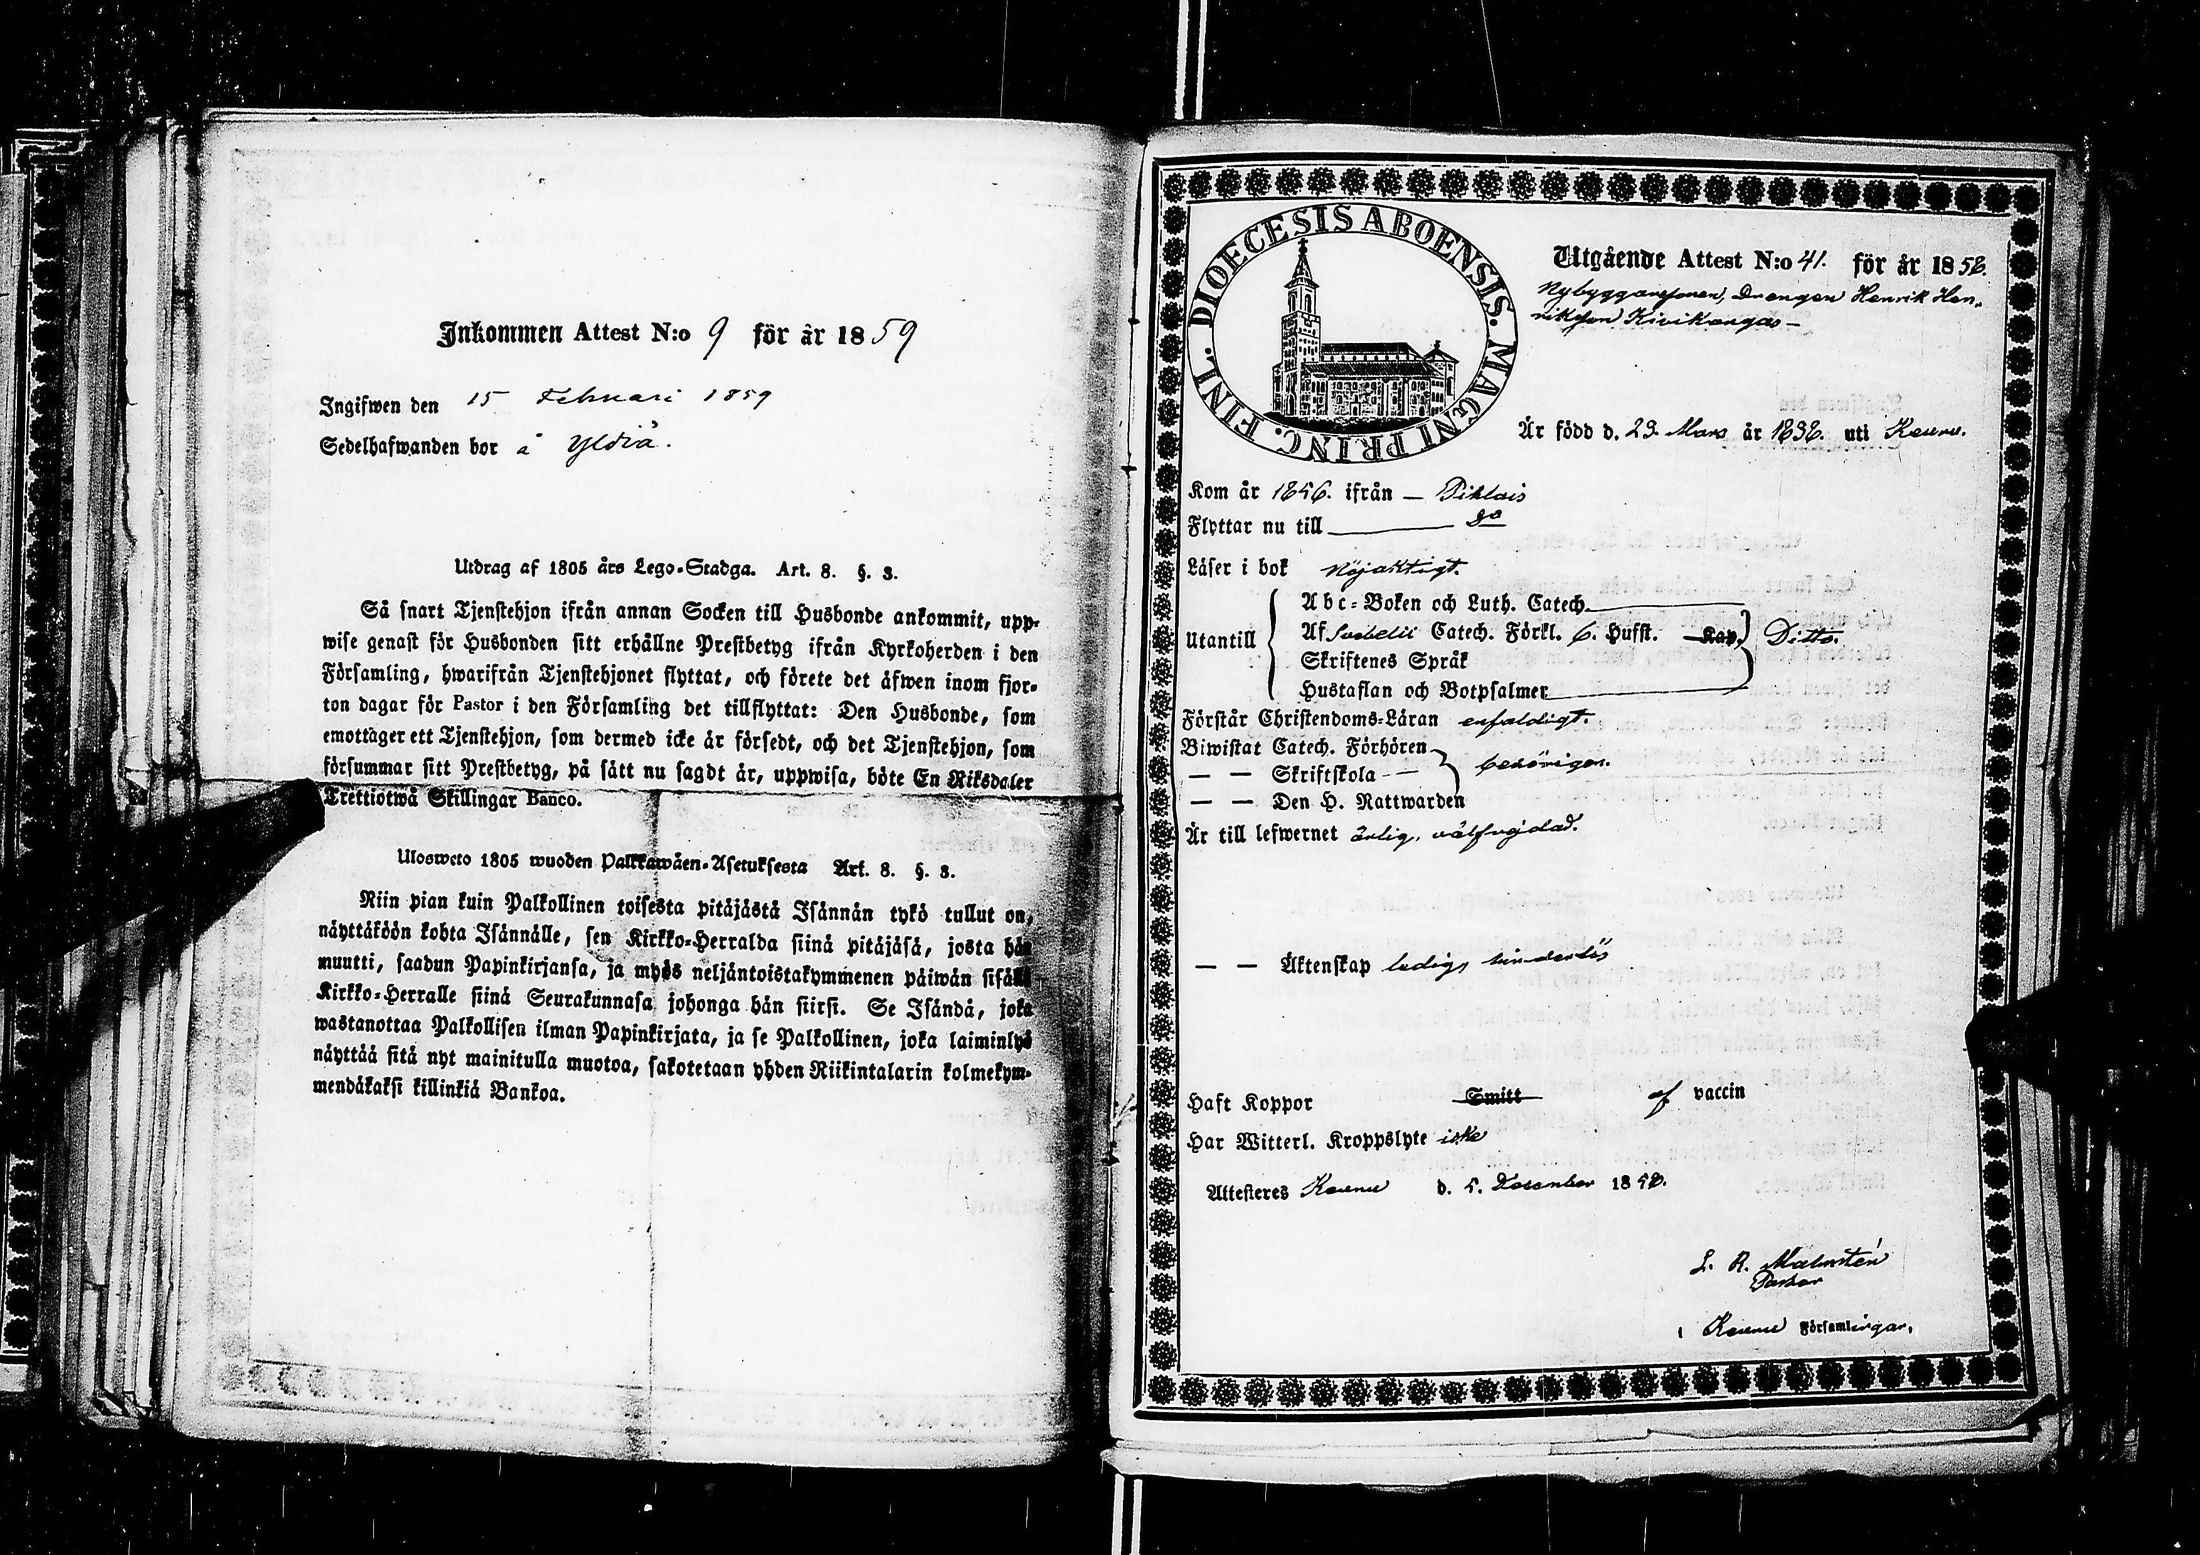 Inkommen Attest N:o 9 för år 1859
Ingifwen den 15 Februari 1859
Sedelhafwanden bor å Yldiä.
Utdrag af 1805 års Lego-Stadga. Art. 8. §. 3.
Så snart Tjenstehjon ifrån annan Socken till Husbonde ankommit, upp-
wise genast för Husbonden sitt erhållne Prestbetyg ifrån Kyrkoherden i den
Församling, hwarifrån Tjenstehjonet flyttat, och förete det äfwen inom fjor-
ton dagar för Pastor i den Församling det tillflyttat: Den Husbonde, som
emottager ett Tjenstehjon, som dermed icke är försedt, och det Tjenstehjon, som
försummar sitt Prestbetyg, på sätt nu sagdt är, uppwisa, böte En Riksdaler
Trettiotwå Skillingar Banco.
Ulosweto 1805 wuoden Palkkawäen-Asetuksesta Art. 8. §. 3.
Niin pian kuin Palkollinen toisesta pitäjästä Isännän tykö tullut on,
näyttäköön kohta Isännälle, sen Kirkko-Herralda siinä pitäjäsä, josta hän
muutti, saadun Papinkirjansa, ja myös neljäntoistakymmenen päiwän sisällä
Kirkko-Herralle siinä Seurakunnasa johonga hän siirsi. Se Isändä, joka
wastanottaa Palkollisen ilman Papinkirjata, ja se Palkollinen, joka laiminlyö
näyttää sitä nyt mainitulla muotoa, sakotetaan yhden Riikintalarin kolmekym-
mendäkaksi killinkiä Bankoa.
DIOECESIS ABOENSIS. MAGNI PRINC. FINL.
Utgående Attest N:o 41. för år 1858.
Nybyggaresonen, Drängen Henrik Hen-
riksson Kivikangas —
Är född d. 23. Mars år 1838. uti Keuru.
Kom år 1856. ifrån — Pihlais
Flyttar nu till do
Läser i bok Nöjaktigt.
Utantill
Abc-Boken och Luth. Catech.
Af Svebelii Catech. Förkl. 6. Hufst. Kap. Ditto.
Skriftenes Språk
Hustaflan och Botpsalmer
Förstår Christendoms-Läran enfaldigt.
Biwistat Catech. Förhören
— — Skriftskola — behörigen.
— — Den H. Nattwarden
Är till lefwernet ärlig, välfrejdad.
— — Äktenskap ledig, hinderlös
Haft Koppor Smitt af vaccin
Har Witterl. Kroppslyte icke
Attesteres Keuru d. 5. December 1858.
L. R. Malmstén
Pastor
i Keuru Församlingar.